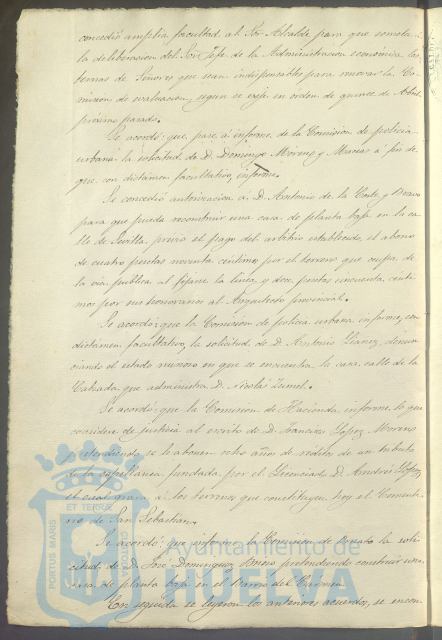 concedió amplia facultad al Sor Alcalde para que someta á
la deliberacion del Sor Jefe de la Administracion económica las
ternas de Señores que sean indispensables para renovar la Co-
mision de evaluacion, segun se exije en orden de quince de Abril
próximo pasado.
Se acordó: que pase á informe de la Comision de policia
urbana la solicitud de D. Domingo Moreno y Macias á fin de
que con dictámen facultativo, informe.
Se concedió autorizacion á D. Antonio de la Corte y Bravo
para que pueda reconstruir una casa de planta baja en la ca-
lle de Sevilla, prévio el pago del arbitrio establecido, el abono
de cuatro pesetas noventa céntimos por el terreno que ocupa de
la via pública al fijarse la linea y doce pesetas cincuenta cénti-
mos por sus honorarios al Arquitecto provincial.
Se acordó: que la Comision de policia urbana informe, con
dictámen facultativo, la solicitud de D. Antonio Ibañez, denun-
ciando el estado ruinoso en que se encuentra la casa, calle de la
Calzada, que administra D. Nicolás
Se acordó: que la Comision de Hacienda informe lo que
considere de justicia al escrito de D. Francisco Lopez Moreno
pretendiendo se le abonen ocho años de réditos de un tributo
de la capellanía fundada por el Licenciado D. Andrés Lopez,
el cual grava á los terrenos que constituyen hoy el Cemente-
rio de San Sebastian.
Se acordó: que informe la Comision de Ornato la soli-
citud de D. José Dominguez pretendiendo construir una
casa de planta baja en el Barrio del Carmen.
En seguida se leyeron los anteriores acuerdos, se encon-
PORTUS MARIS
ET TERRÆ
Ayuntamiento de
HUELVA